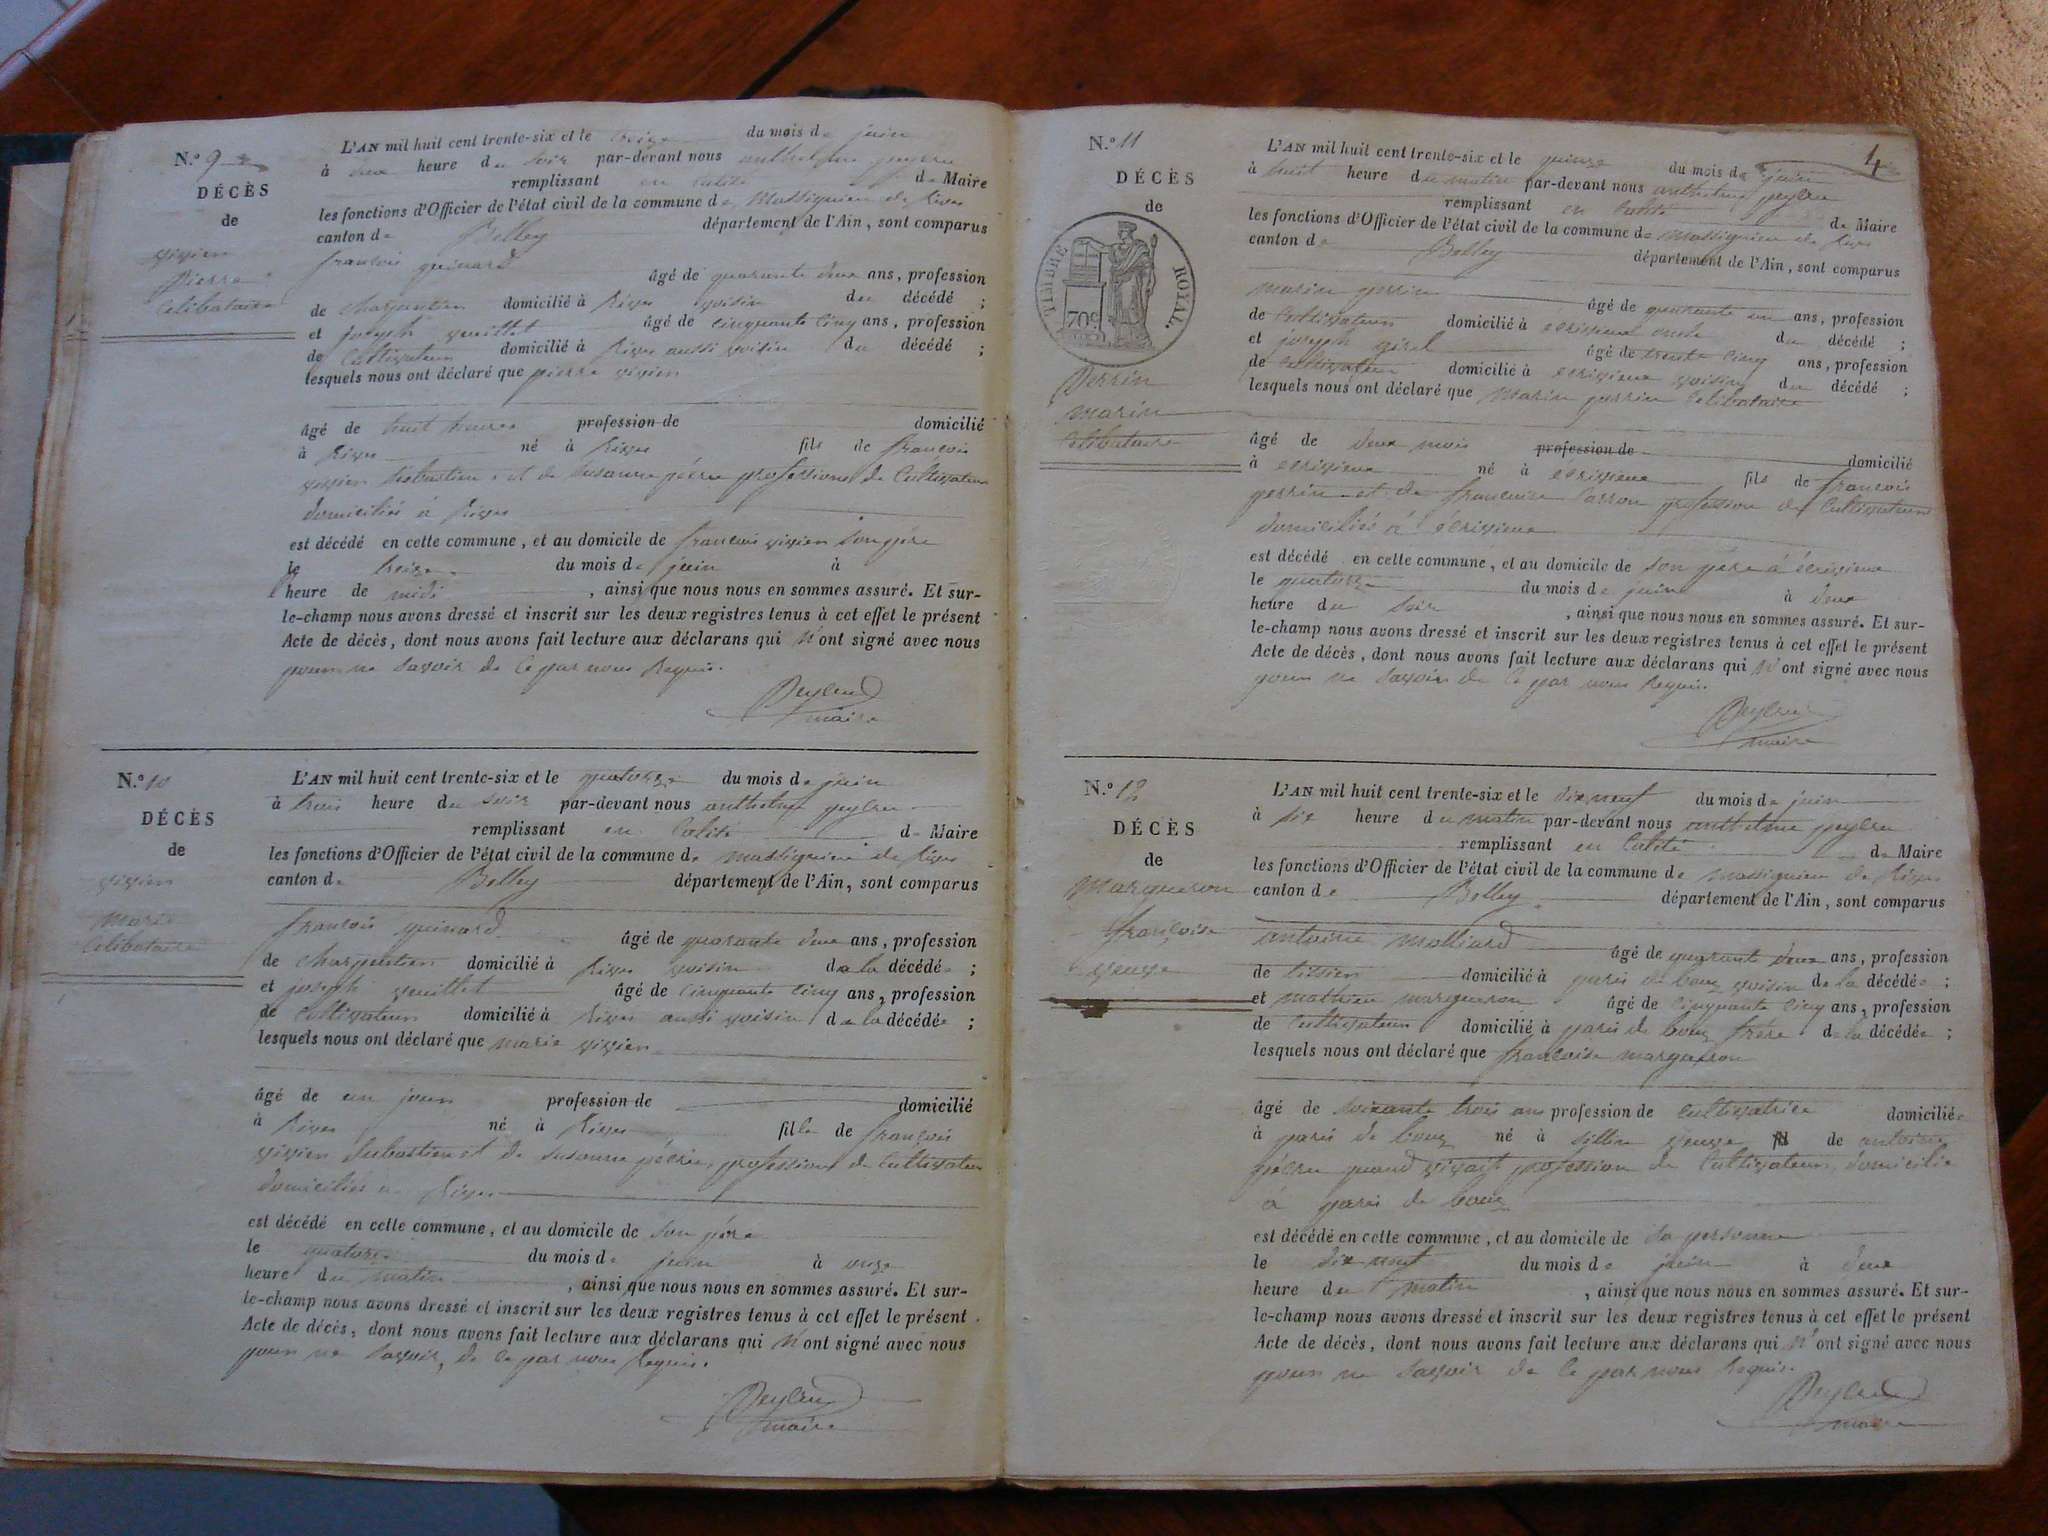 N.º 9
DÉCÈS
de
vivien
Pierre
Celibataire
L'AN mil huit cent trente-six et le treize du mois de juin
à deux heure du soir par-devant nous anthelme peyleu
remplissant en calité de Maire
les fonctions d'Officier de l'état civil de la commune de Massignieu de Rives
canton de Belley département de l'Ain, sont comparus
francois guinard
âgé de quarante deux ans, profession
de charpentier domicilié à Rives voisin du décédé ;
et joseph vuillet âgé de cinquante cinq ans, profession
de Cultivateur domicilié à Rives aussi voisin du décédé ;
lesquels nous ont déclaré que pierre vivien
âgé de huit heures profession de domicilié
à Rives né à Rives fils de francois
vivien Sebastien et de Susanne professions de Cultivateur
domiciliés à Rives
est décédé en cette commune, et au domicile de francois vivien son père
le treize du mois de juin à
heure de midi , ainsi que nous nous en sommes assuré. Et sur-
le-champ nous avons dressé et inscrit sur les deux registres tenus à cet effet le présent
Acte de décès, dont nous avons fait lecture aux déclarans qui n'ont signé avec nous
pour ne savoir de ce par nous Requis.
Peyleu
maire
N.º 10
DÉCÈS
de
vivien
Marie
Celibataire
L'AN mil huit cent trente-six et le quatorze du mois de juin
à trois heure du soir par-devant nous anthelme peyleu
remplissant en calité de Maire
les fonctions d'Officier de l'état civil de la commune de massignieu de Rives
canton de Belley département de l'Ain, sont comparus
francois guinard
âgé de quarante deux ans, profession
de charpentier domicilié à Rives voisin de la décédée ;
et joseph vuillet âgé de cinquante cinq ans, profession
de Cultivateur domicilié à Rives aussi voisin de la décédée ;
lesquels nous ont déclaré que marie vivien
âgé de un jour profession de domicilié
à Rives né à Rives fille de francois
vivien Sebastien et de Susanne professions de Cultivateur
domiciliés à Rives
est décédé en cette commune, et au domicile de son père
le quatorze du mois de juin à onze
heure du matin , ainsi que nous nous en sommes assuré. Et sur-
le-champ nous avons dressé et inscrit sur les deux registres tenus à cet effet le présent
Acte de décès, dont nous avons fait lecture aux déclarans qui n'ont signé avec nous
pour ne savoir, de ce par nous Requis.
Peyleu
maire
4
N.º 11
DÉCÈS
de
TIMBRE ROYAL.
70c
Perrin
marin
Celibataire
L'AN mil huit cent trente-six et le quinze du mois de juin
à huit heure du matin par-devant nous anthelme peyleu
remplissant en calité de Maire
les fonctions d'Officier de l'état civil de la commune de massignieu de Rives
canton de Belley département de l'Ain, sont comparus
marin perrin
âgé de quarante un ans, profession
de Cultivateur domicilié à écrivieux oncle du décédé ;
et joseph âgé de trente cinq ans, profession
de Cultivateur domicilié à écrivieux voisin du décédé ;
lesquels nous ont déclaré que Marin perrin Celibataire
âgé de deux mois profession de domicilié
à écrivieux né à écrivieux fils de francois
perrin et de francoise profession de Cultivateurs
domiciliés à écrivieux
est décédé en cette commune, et au domicile de son père à écrivieux
le quatorze du mois de juin à deux
heure du soir , ainsi que nous nous en sommes assuré. Et sur-
le-champ nous avons dressé et inscrit sur les deux registres tenus à cet effet le présent
Acte de décès, dont nous avons fait lecture aux déclarans qui n'ont signé avec nous
pour ne savoir de ce par nous Requis.
Peyleu
maire
N.º 12
DÉCÈS
de
Margueron
françoise
veuve
L'AN mil huit cent trente-six et le dix neuf du mois de juin
à six heure du matin par-devant nous anthelme peyleu
remplissant en calité de Maire
les fonctions d'Officier de l'état civil de la commune de massignieu de Rives
canton de Belley département de l'Ain, sont comparus
antoine molliard
âgé de quarante deux ans, profession
de tissier domicilié à voisin de la décédée ;
et mathieu margueron âgé de cinquante cinq ans, profession
de Cultivateur domicilié à frère de la décédée ;
lesquels nous ont déclaré que francoise margueron
âgé de soixante trois ans profession de cultivatrice domiciliée
à né à veuve de antoine
quand vivait profession de Cultivateur, domicilié
à
est décédé en cette commune, et au domicile de sa personne
le dix neuf du mois de juin à deux
heure du matin , ainsi que nous nous en sommes assuré. Et sur-
le-champ nous avons dressé et inscrit sur les deux registres tenus à cet effet le présent
Acte de décès, dont nous avons fait lecture aux déclarans qui n'ont signé avec nous
pour ne savoir de ce par nous Requis.
Peyleu
maire